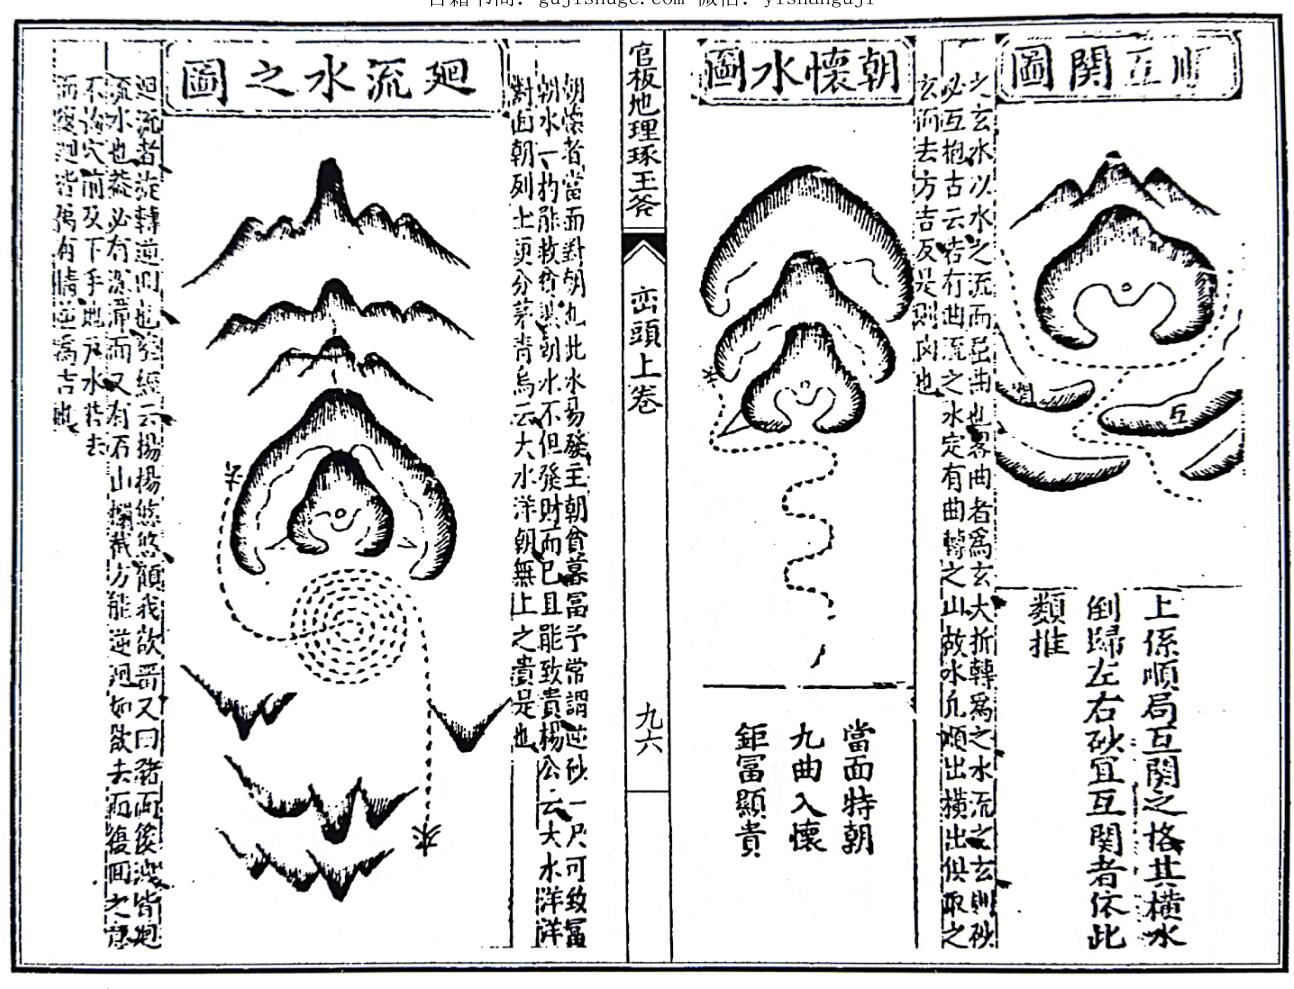 古籍书阁：gujishuge.com 微信：yishanguji
順互関圖
関
互
上係順局互関之格其橫水
倒歸左右砂宜互関者依此
類推
之玄水以水之流而屈曲也畧曲者爲玄大折轉爲之水流之玄則砂
必互抱古云若有曲流之水定有曲轉之山故水凢順出橫出俱取之
玄而去方吉反是則凶也
朝懷水圖
當面特朝
九曲入懷
鉅冨顯貴
官板地理琢玉斧
巒頭上卷
九六
朝懷者當面對朝也此水易發主朝貧暮冨予常謂逆砂一尺可致冨
朝水一杓能救貧與朝水不但發財而已且能致貴楊公云大水洋洋
對面朝列土更分茅青烏云大水洋朝無上之貴是也
廻流水之圖
水
廻流者旋轉逆囘也葬經云揚揚悠悠顧我欲畱又曰豬而後洩皆廻
流水也葢必有深潭而又有石山攔截方能逆廻如欲去而復囬之意
不論穴前及下手地戶水共去
而復廻皆爲有情逆爲吉也